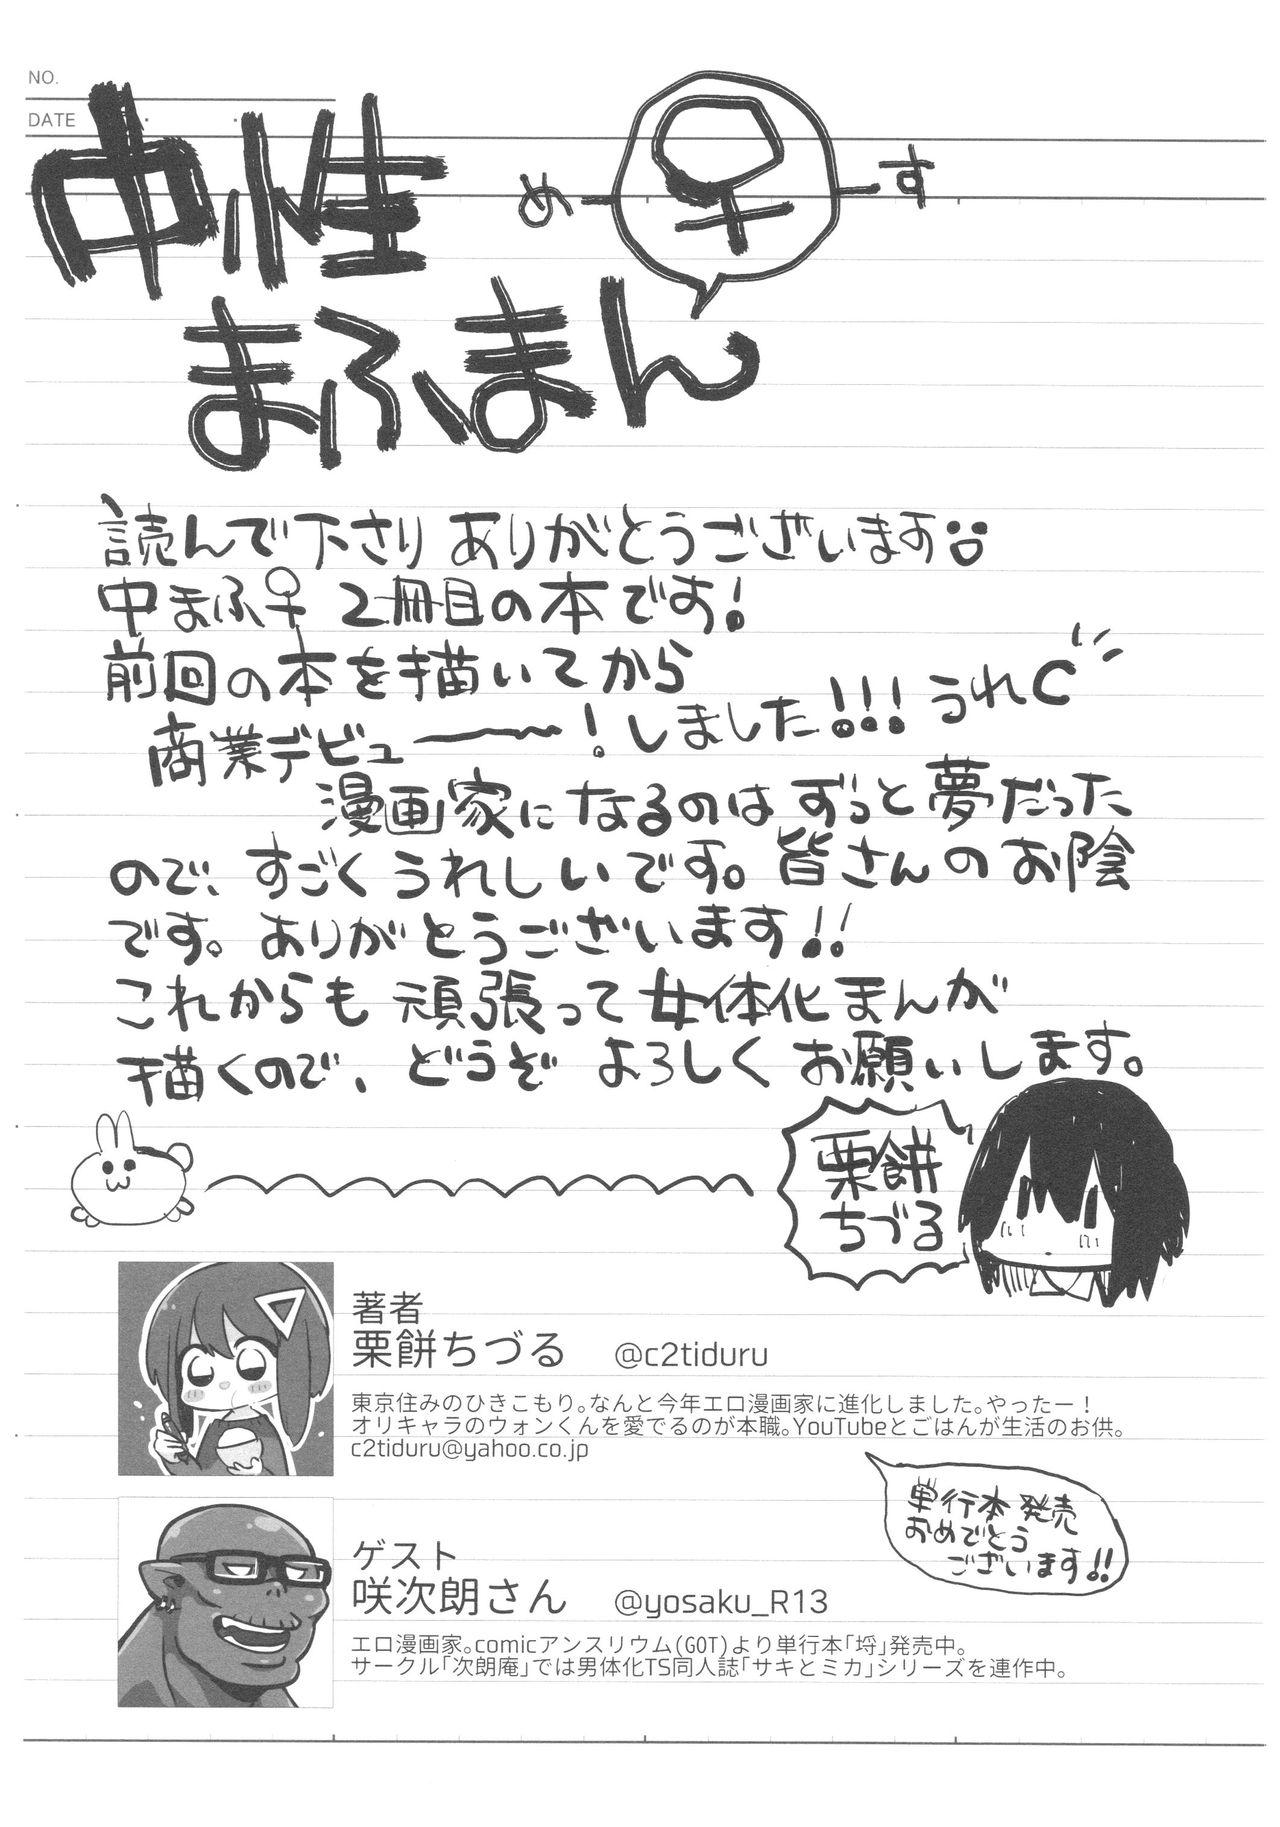 NO.
DATE
中性
め♀す
まふまん
読んで下さりありがとうございます
中まふ♀ 2冊目の本です!
前回の本を描いてから
商業デビュー〜〜!しました!!! うれC
漫画家になるのはずっと夢だった
ので、すごくうれしいです。皆さんのお陰
です。ありがとうございます!!
これからも頑張って女体化まんが
描くので、どうぞよろしくお願いします。
栗餅
ちづる
著者
栗餅ちづる @c2tiduru
東京住みのひきこもり。なんと今年エロ漫画家に進化しました。やったー!
オリキャラのウォンくんを愛でるのが本職。YouTubeとごはんが生活のお供。
c2tiduru@yahoo.co.jp
単行本発売
おめでとう
ございます!!
ゲスト
咲次朗さん @yosaku_R13
エロ漫画家。comicアンスリウム(GOT)より単行本「埒」発売中。
サークル「次朗庵」では男体化TS同人誌「サキとミカ」シリーズを連作中。